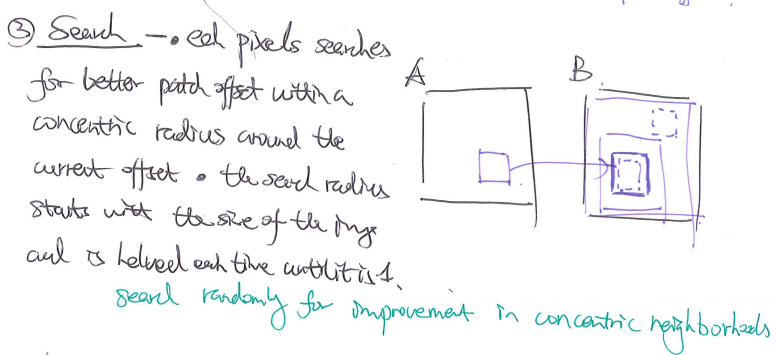 ③ Search —• each pixels searches
for better patch offset within a
concentric radius around the
current offset • the search radius
starts with the size of the image
and is halved each time until it is 1.
search randomly for improvement in concentric neighborhoods
A
B